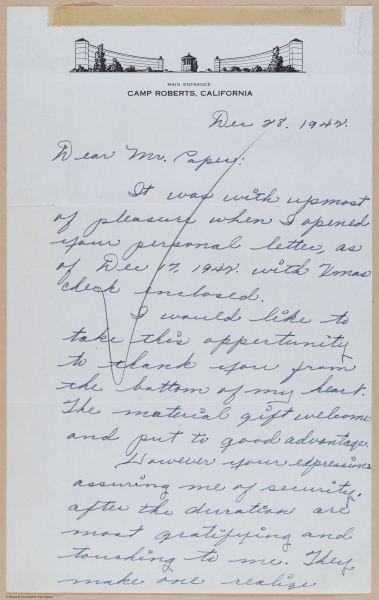 MAIN ENTRANCE
CAMP ROBERTS, CALIFORNIA
Dec 28. 1942.
Dear Mr. Caper:
It was with upmost
of pleasure when I opened
your personal letter, as
of Dec 17, 1942. with Xmas
check enclosed.
I would like to
take this opportunity
to thank you from
the bottom of my heart.
The material gift welcome
and put to good advantage.
However your expressions
assuring me of security,
after the duration are
most gratifying and
touching to me. They
make one realize